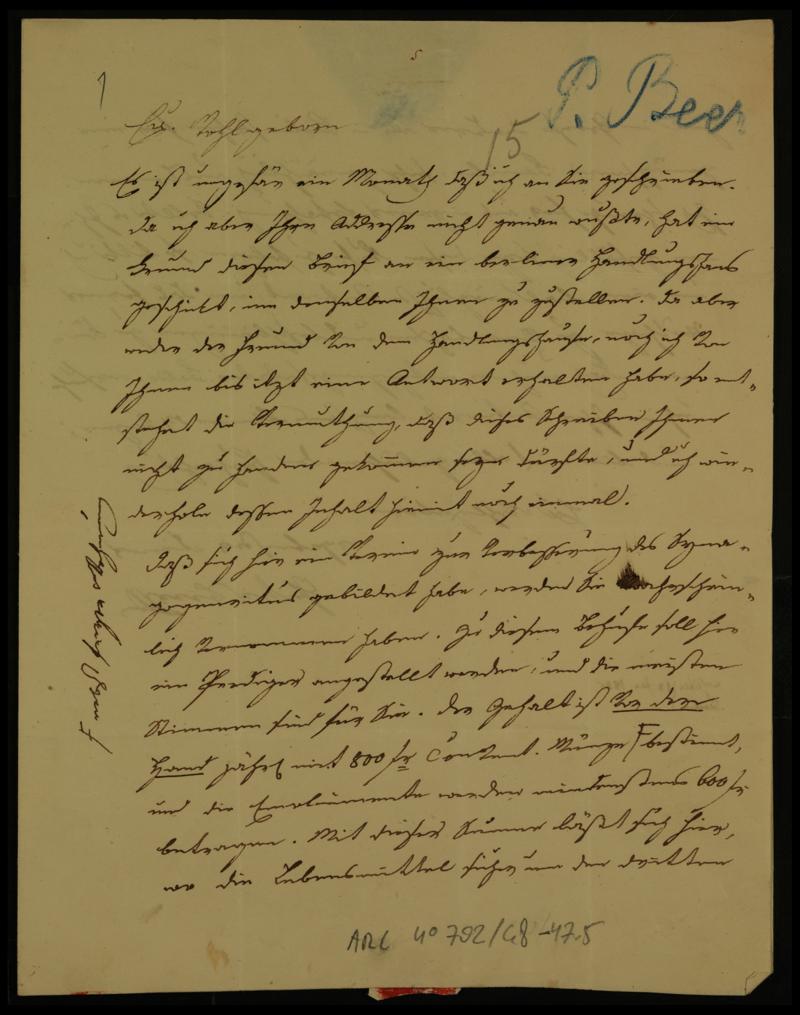 1
P. Beer
15
Ew. Wohlgeborn
Es ist ungefär ein Monath daß ich an Sie geschrieben.
Da ich aber Ihre Addresse nicht genau wußte, hat ein
Freund diesen Brief an ein berliner Handlungshaus
geschickt, um denselben Ihnen zu zustellen. Da aber
weder der Freund von dem Handlungshause, noch ich von
Ihnen bis itzt eine Antwort erhalten habe, so ent-
stehet die Vermuthung, daß dieses Schreiben Ihnen
nicht zu Handen gekommen seyn dürfte, und ich wie-
derhole dessen Inhalt hiemit noch einmal.
Daß sich hier ein Verein zur Verbesserung des Syna-
gogenritus gebildet habe, werden Sie wahrschein-
lich vernommen haben. Zu diesem Behufe soll hier
ein Prediger angestellt werden, und die meisten
Stimmen sind für Sie. Der Gehalt ist vor der
Hand jährl mit 800 fr Convent. Münze bestimmt,
und die Emolumente werden mindestens 600 fr
betragen. Mit dieser Summe läßt sich hier,
wo die Lebensmittel sehr um den dritten
ARC 4° 792/G8-47.5